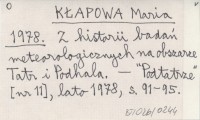 KŁAPOWA Maria
1978. Z historii badań
meteorologicznych na obszarze
Tatr i Podhala. — "Podtatrze"
[nr 11], lato 1978, s. 91-95.